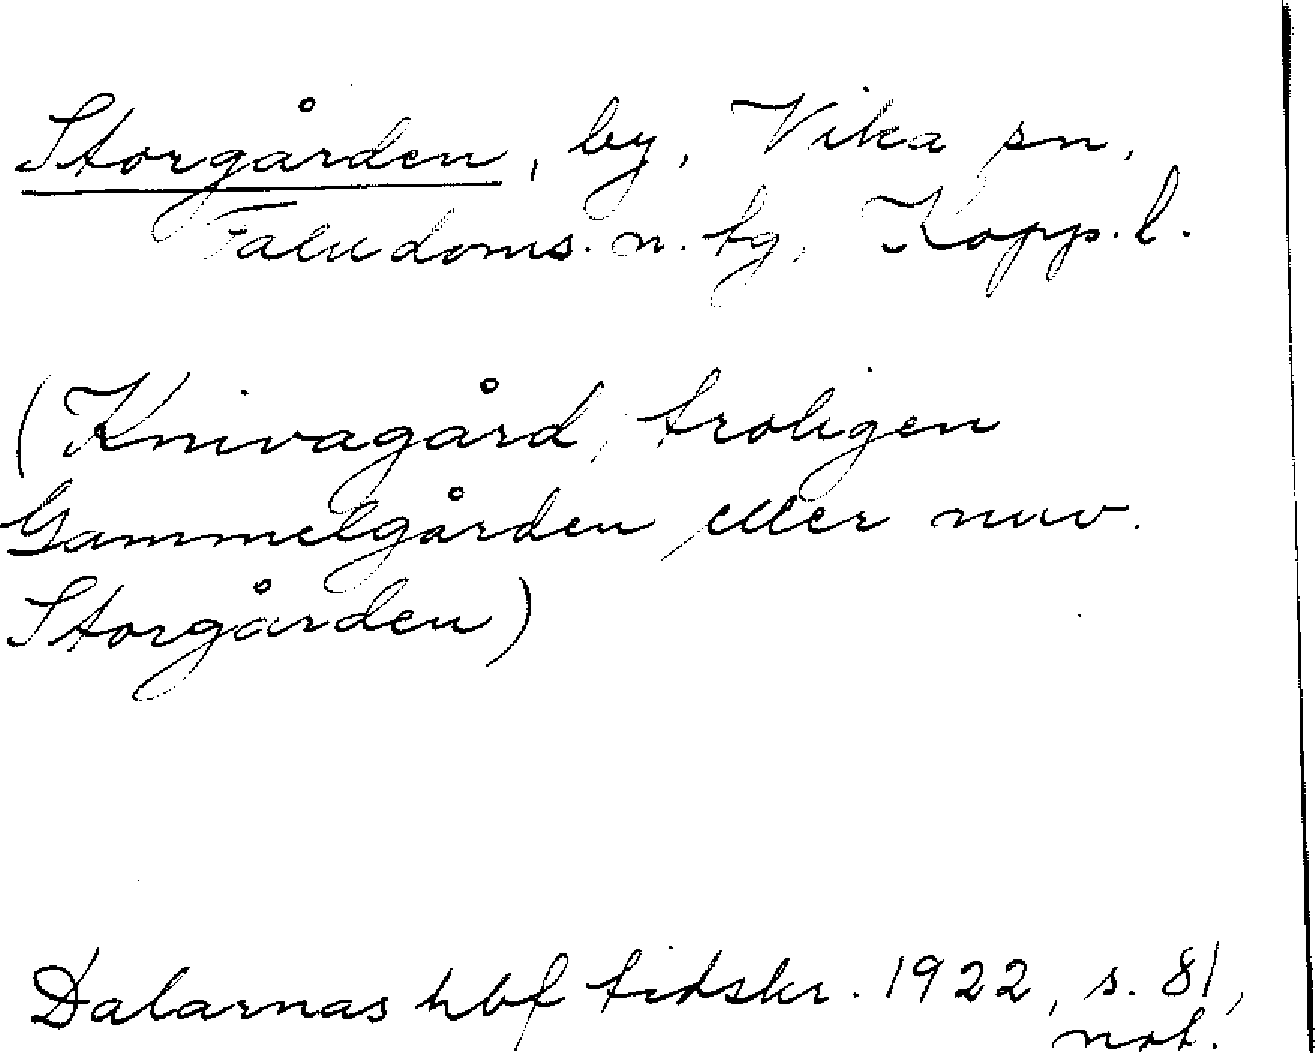 Storgården, by, Vika sn,
Falu doms. n. tg, Kopp. l.
(Knivagård, troligen
Gammelgården eller nuv.
Storgården)
Dalarnas hbf tidskr. 1922, s. 81,
not.